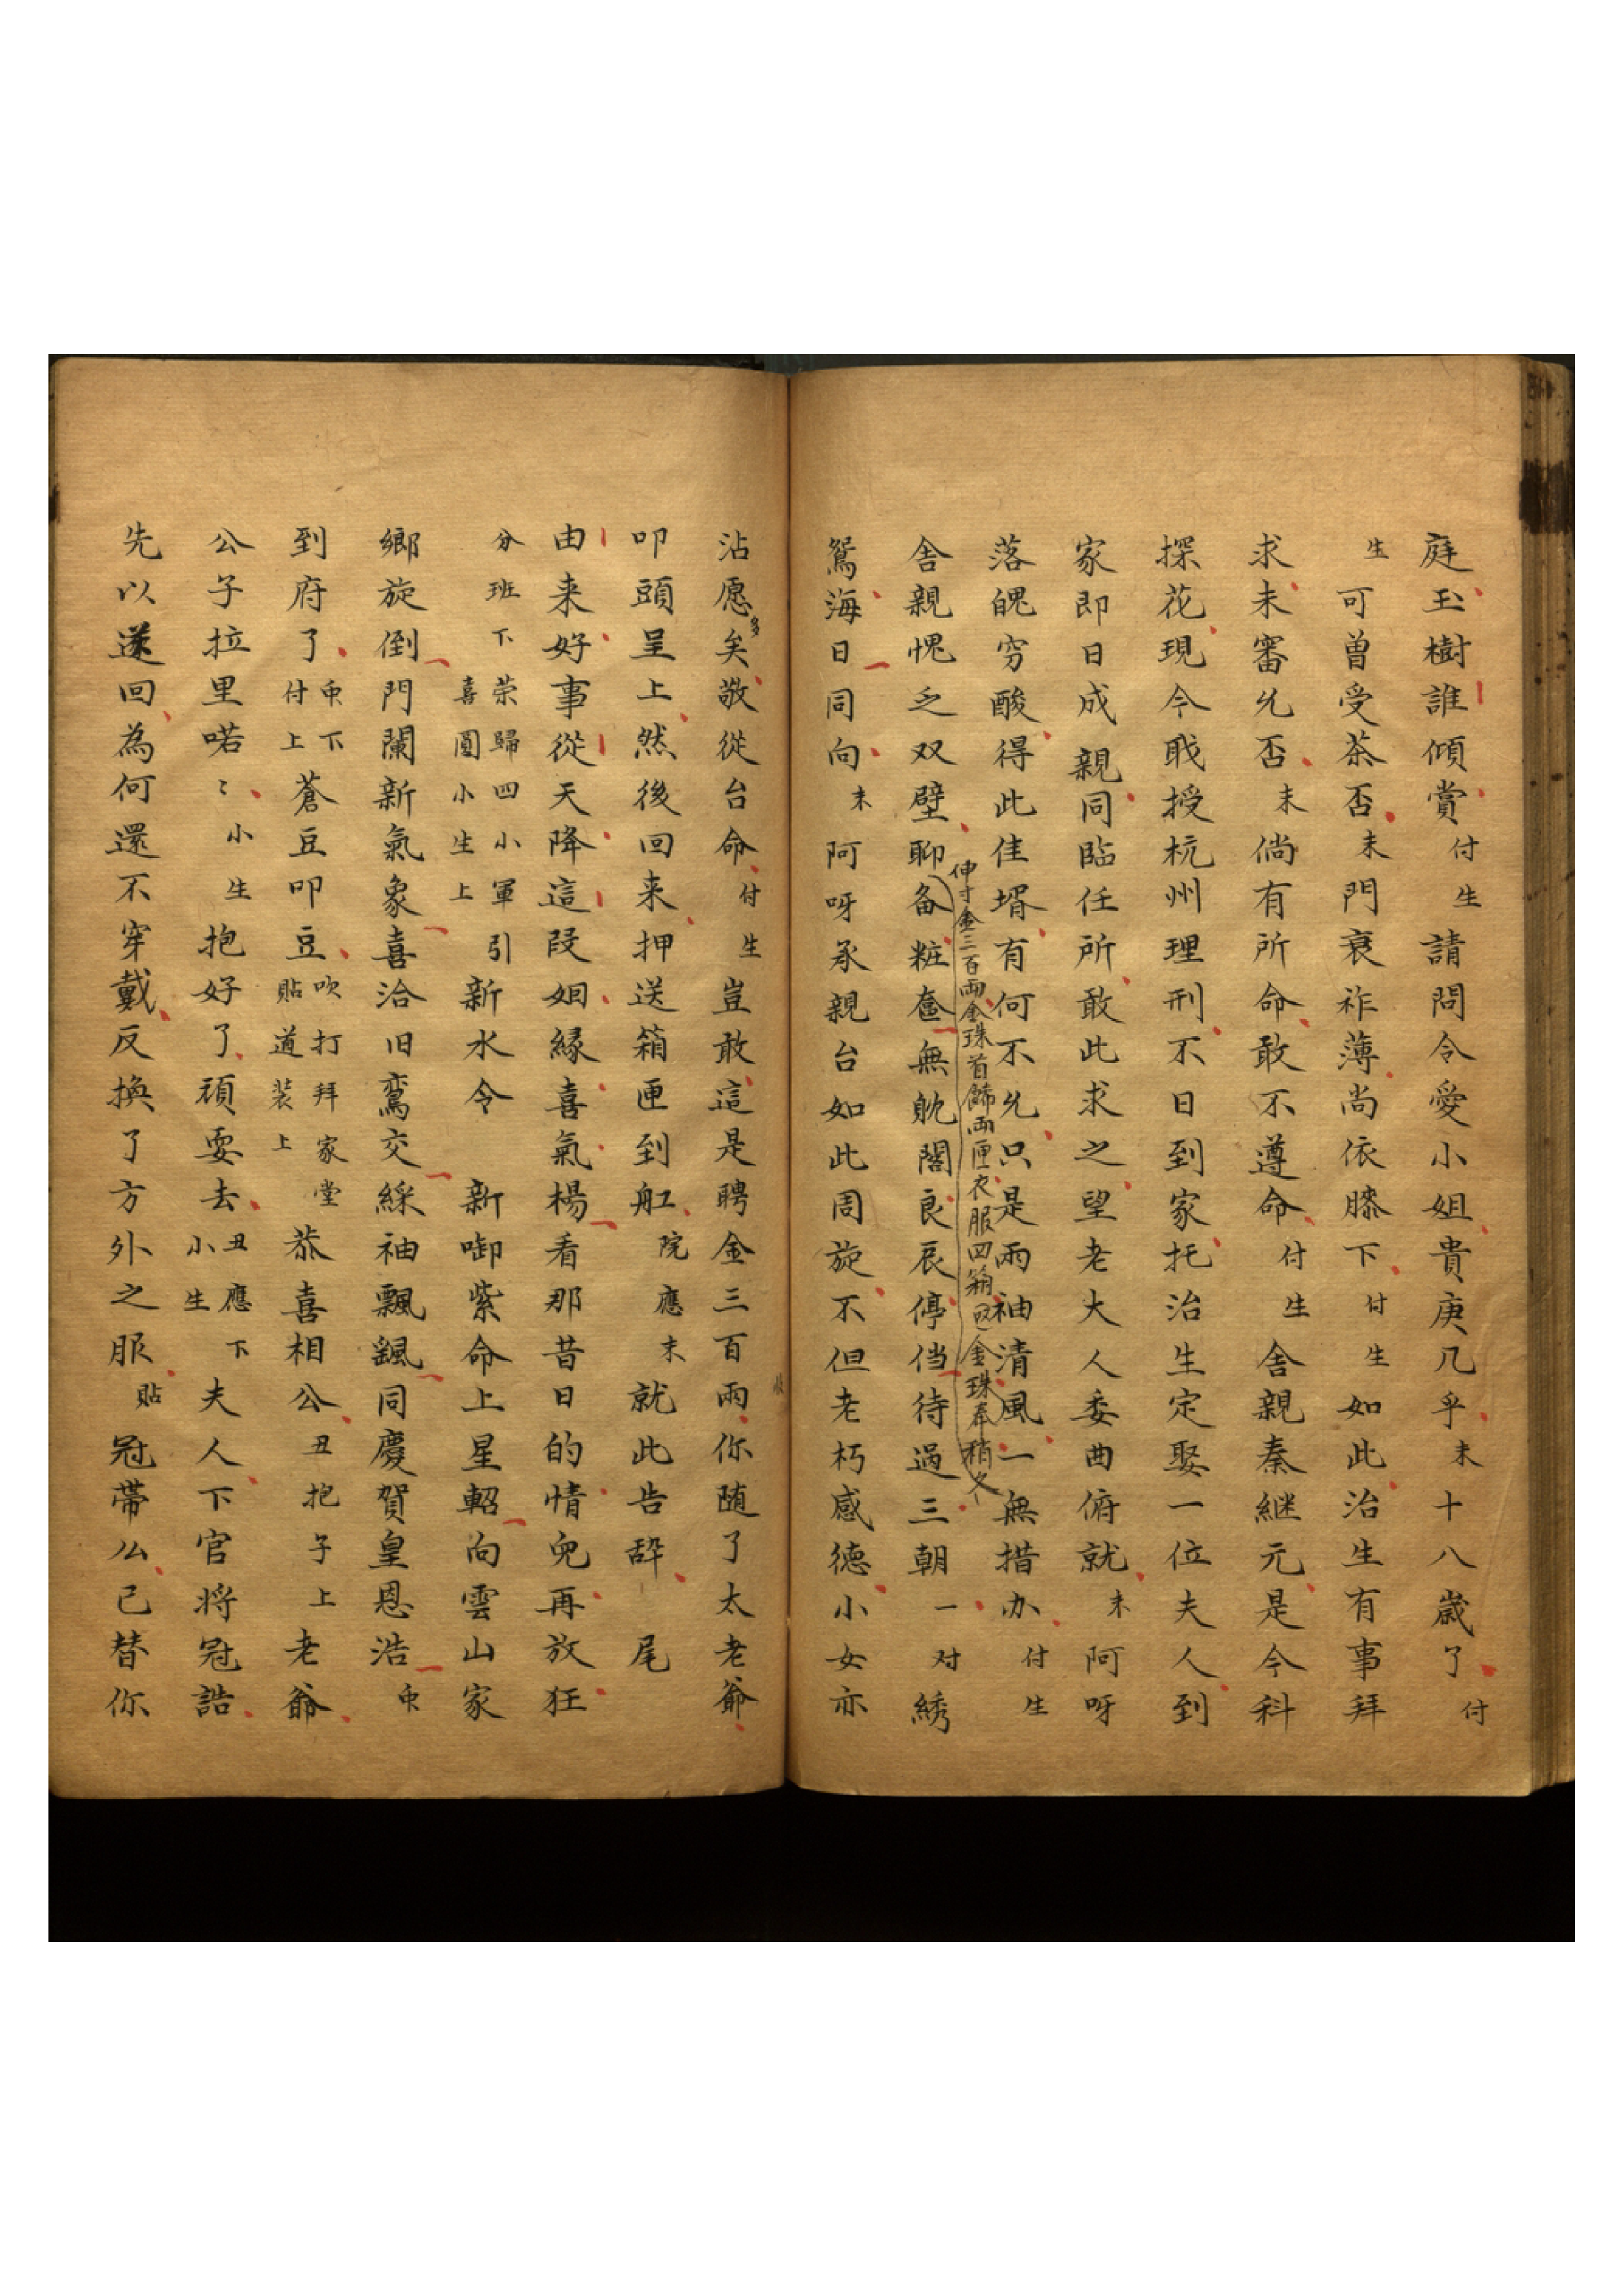 庭玉樹誰傾賞付生請問令愛小姐貴庚几乎末十八歲了付
生可曾受茶否末門衰祚薄尚依膝下付生如此治生有事拜
求未審允否末倘有所命敢不遵命付生舍親秦継元是今科
探花現今戢授杭州理刑不日到家托治生定娶一位夫人到
家即日成親同臨任所敢此求之望老大人委曲俯就末阿呀
落魄穷酸得此佳壻有何不允只是兩袖清風一無措办付生
金三百兩金珠首飾兩匣衣服四箱金珠奉
舍親愧乏双壁聊备粧奩無躭閣良辰停偫待過三朝一对綉
鴛海日同向末阿呀承親台如此周旋不但老朽感德小女亦
沾愿多矣敬從台命付生豈敢這是聘金三百兩你随了太老爺
叩頭呈上然後回来押送箱匣到舡院應末就此告辞尾
由来好事從天降這叚姻緣喜氣楊看那昔日的情兒再放狂
分班下荣歸喜圓四小軍引小生上新水令新啣紫命上星軺向雲山家
鄉旋倒門闌新氣象喜洽旧鸞交綵袖飄颻同慶賀皇恩浩
到府了付上下蒼豆叩豆吹打拜家堂貼道装上恭喜相公丑抱子上老爺
公子拉里喏〻小生抱好了頑耍去丑應下小生夫人下官将冠誥
先以送回為何還不穿戴反換了方外之服貼冠帶么已替你